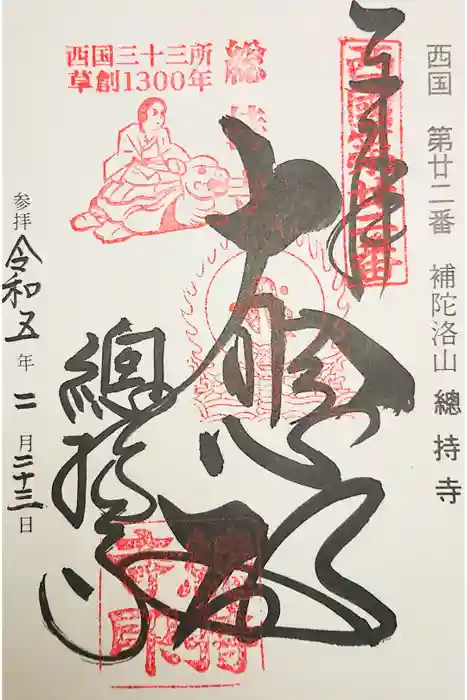 西国 第廿二番 補陀洛山 總持寺
西國第廿二番
大悲殿
總持寺
西国三十三所
草創1300年
総持
参拝 令和五年 二月二十三日